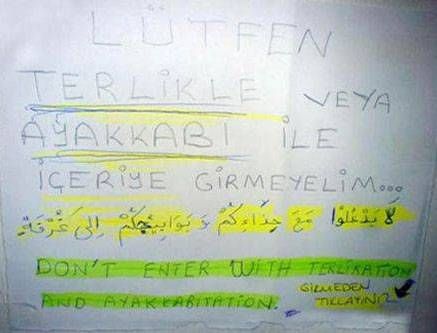 LÜTFEN
TERLİKLE VEYA
AYAKKABI İLE
İÇERİYE GİRMEYELİM...
لَا يَدْخُلُوا مَعَ حِذَاءِكُمْ وَ بَوَابِيجِكُمْ اِلَى غُرْفَةِ
DON'T ENTER WITH TERLIKATION
AND AYAKKABITATION.
GİRMEDEN
TIKLATIN